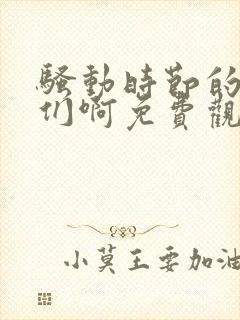 騷動時節的
们啊免費觀
小莫王要加油